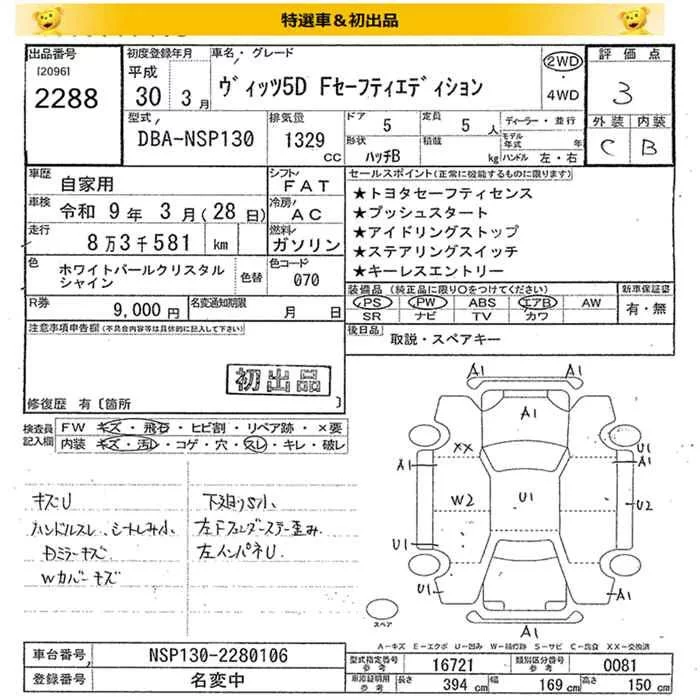 特選車＆初出品
出品番号
[2096]
2288
初度登録年月
平成
30年 3月
車名・グレード
ヴィッツ5D Fセーフティエディション
2WD
・
4WD
評価点
3
外装 内装
C B
型式
DBA-NSP130
排気量
1329
CC
ドア
5
定員
5人
ディーラー・並行
モデル年式 年
形状
ハッチB
積載
kg
ハンドル 左・右
車歴
自家用
シフト
FAT
車検
令和 9年 3月(28日)
冷房
AC
走行
8万3千581 km
燃料
ガソリン
色
ホワイトパールクリスタル
シャイン
色替
色コード
070
R券
9,000円
名変通知期限
月 日
セールスポイント(正常に機能するものに限ります)
★トヨタセーフティセンス
★プッシュスタート
★アイドリングストップ
★ステアリングスイッチ
★キーレスエントリー
装備品 (純正品に限り○をつけてください)
PS PW ABS エアB AW
SR ナビ TV カワ
新車保証書
有・無
後日品
取説・スペアキー
注意事項申告欄(不具合内容等は具体的に記入して下さい)
初出品
修復歴 有〔箇所 〕
検査員
記入欄
FW キズ・飛石・ヒビ割・リペア跡・×要
内装 キズ・汚レ・コゲ・穴・スレ・キレ・破レ
キズU
ハンドルスレ、シートしみ小
Dミラーキズ
Wカバーキズ
下廻りS小
左Fフェンダーステー歪み
左インパネU
A1
A1
XX
A1
U1
A1
W2
U1
U2
U1
U1
A1
U1
A1
スペア
A－キズ E－エクボ U－凹み W－補修跡 S－サビ C－腐食 XX－交換済
車台番号
NSP130-2280106
登録番号
名変中
型式指定番号
参考
16721
類別区分番号
参考
0081
車庫証明用
参考
長さ
394 cm
幅
169 cm
高さ
150 cm